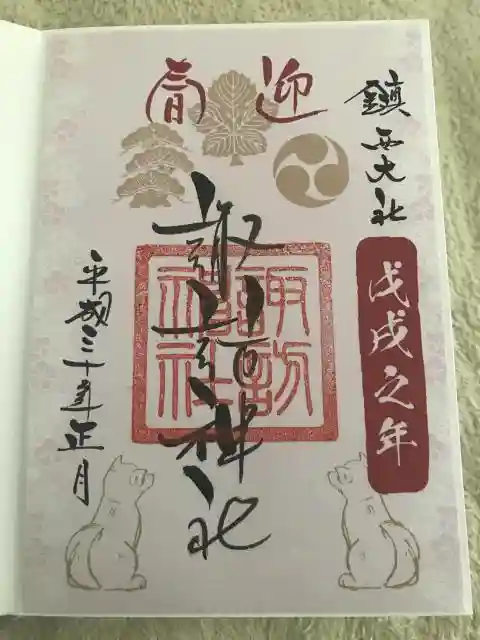 迎春
鎮西大社
戊戌之年
諏訪神社
諏訪
神社
平成三十年正月